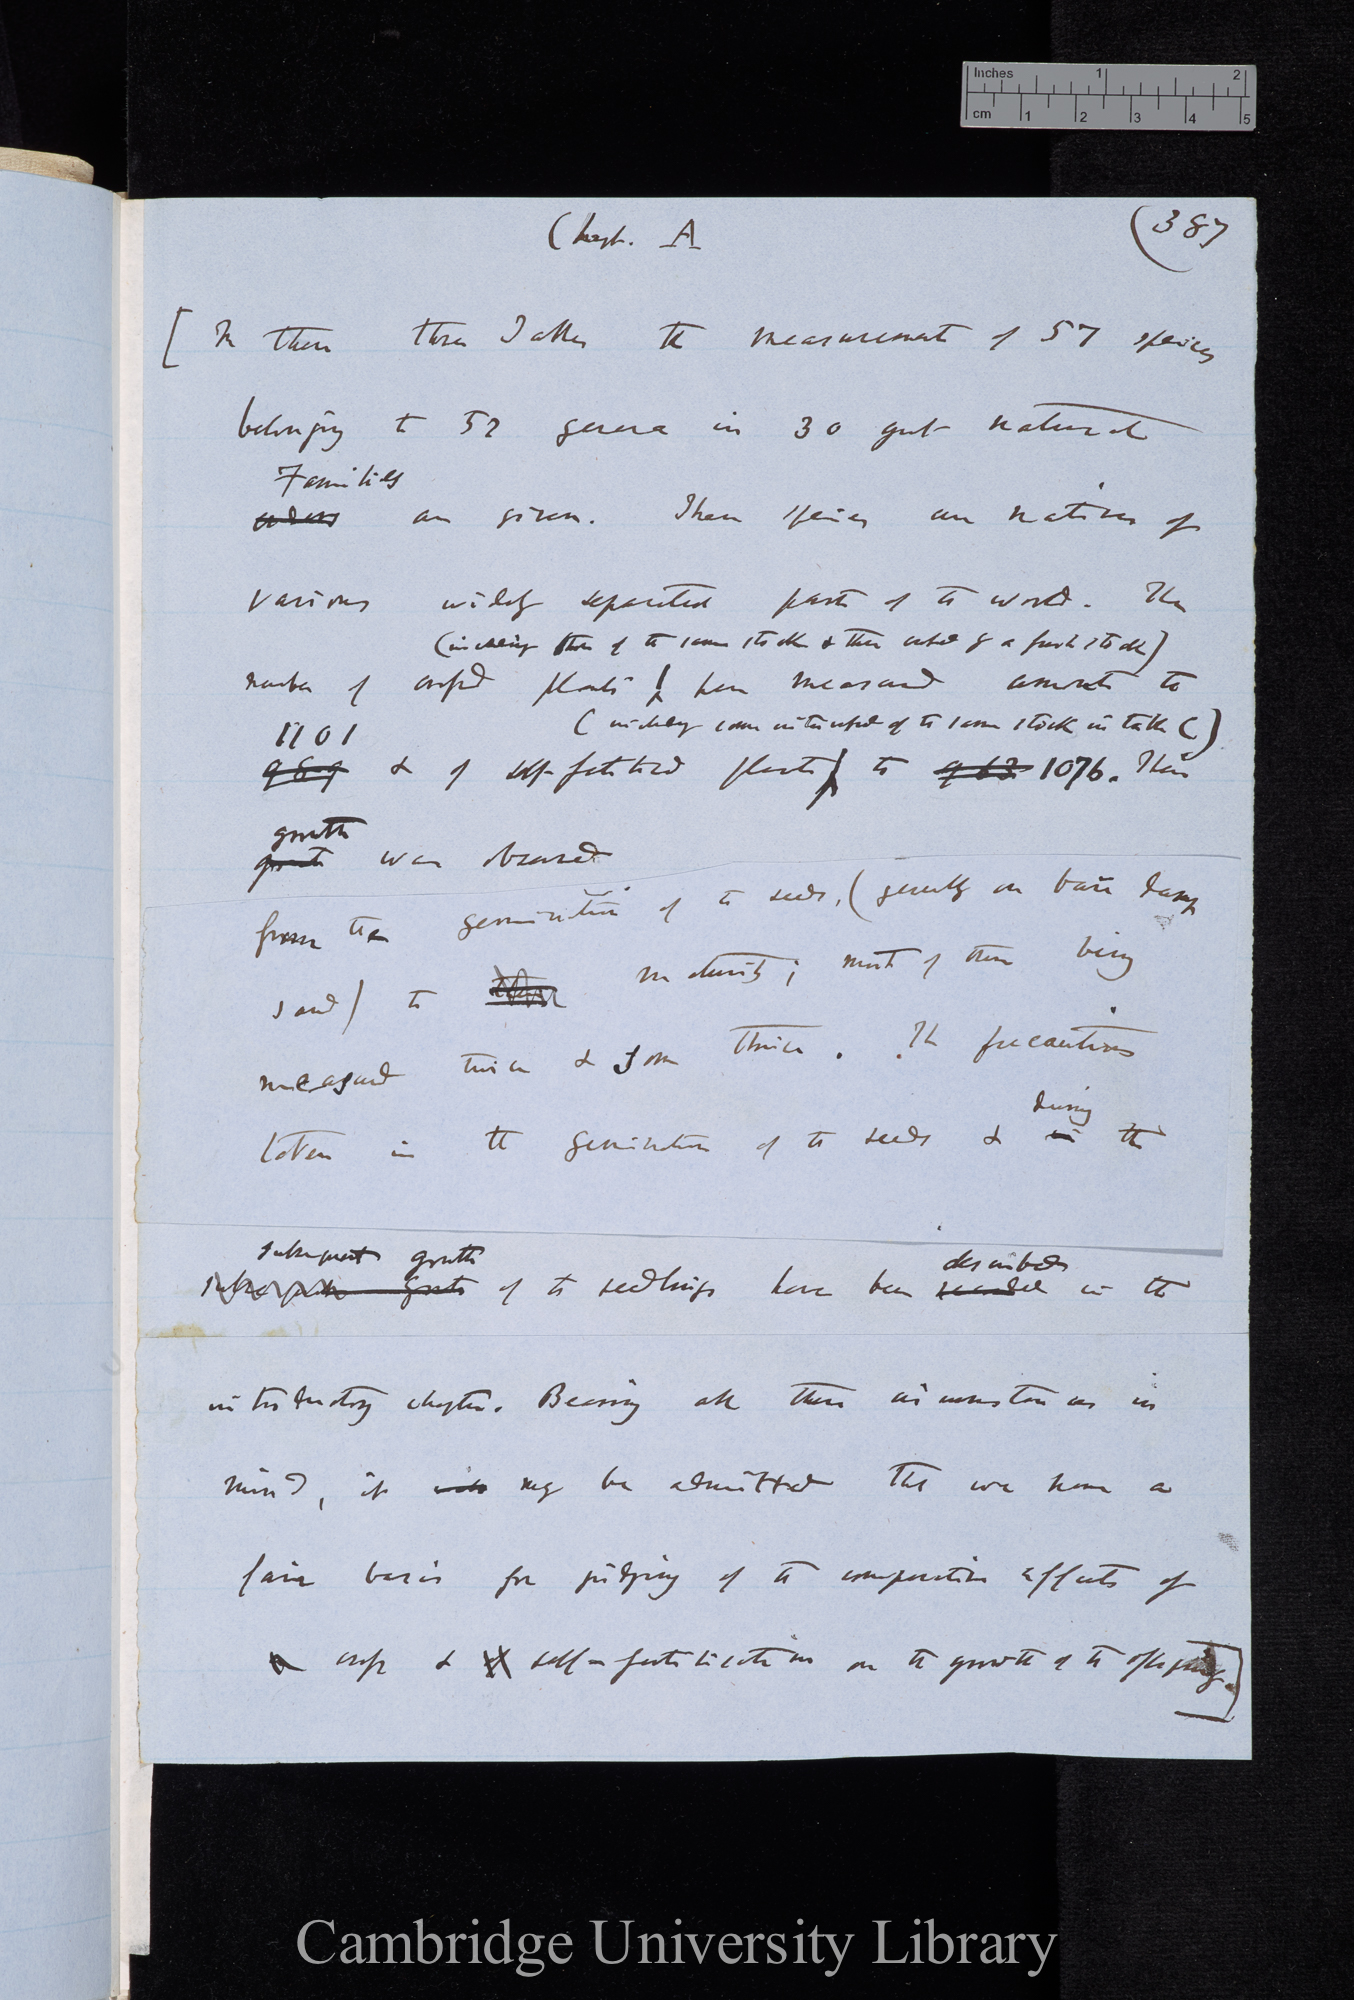 Inches 1 2
cm 1 2 3 4 5
Chapt. A (387
[In these three Tables the measurements of 57 species
belonging to 52 genera in 30 great natural
Families
orders are given. These species are natives of
various widely separated parts of the world. The
(including those of the same stock & those crossed by a fresh stock)
number of crossed plants, here measured amounts to
(including some intercrossed of the same stock in table C)
1101
& of self-fertilised plants, to 1076. Their
growth
growth was observed
from the germination of the seeds, (generally on bare damp
sand) to maturity; most of them being
measured twice & some thrice. The precautions
during
taken in the germination of the seeds & in the
subsequent growth described
subsequent growth of the seedlings have been recorded in the
introductory chapter. Bearing all these circumstances in
mind, it may be admitted that we have a
fair basis for judging of the comparative effects of
cross & self-fertilisation on the growth of the offspring.]
Cambridge University Library